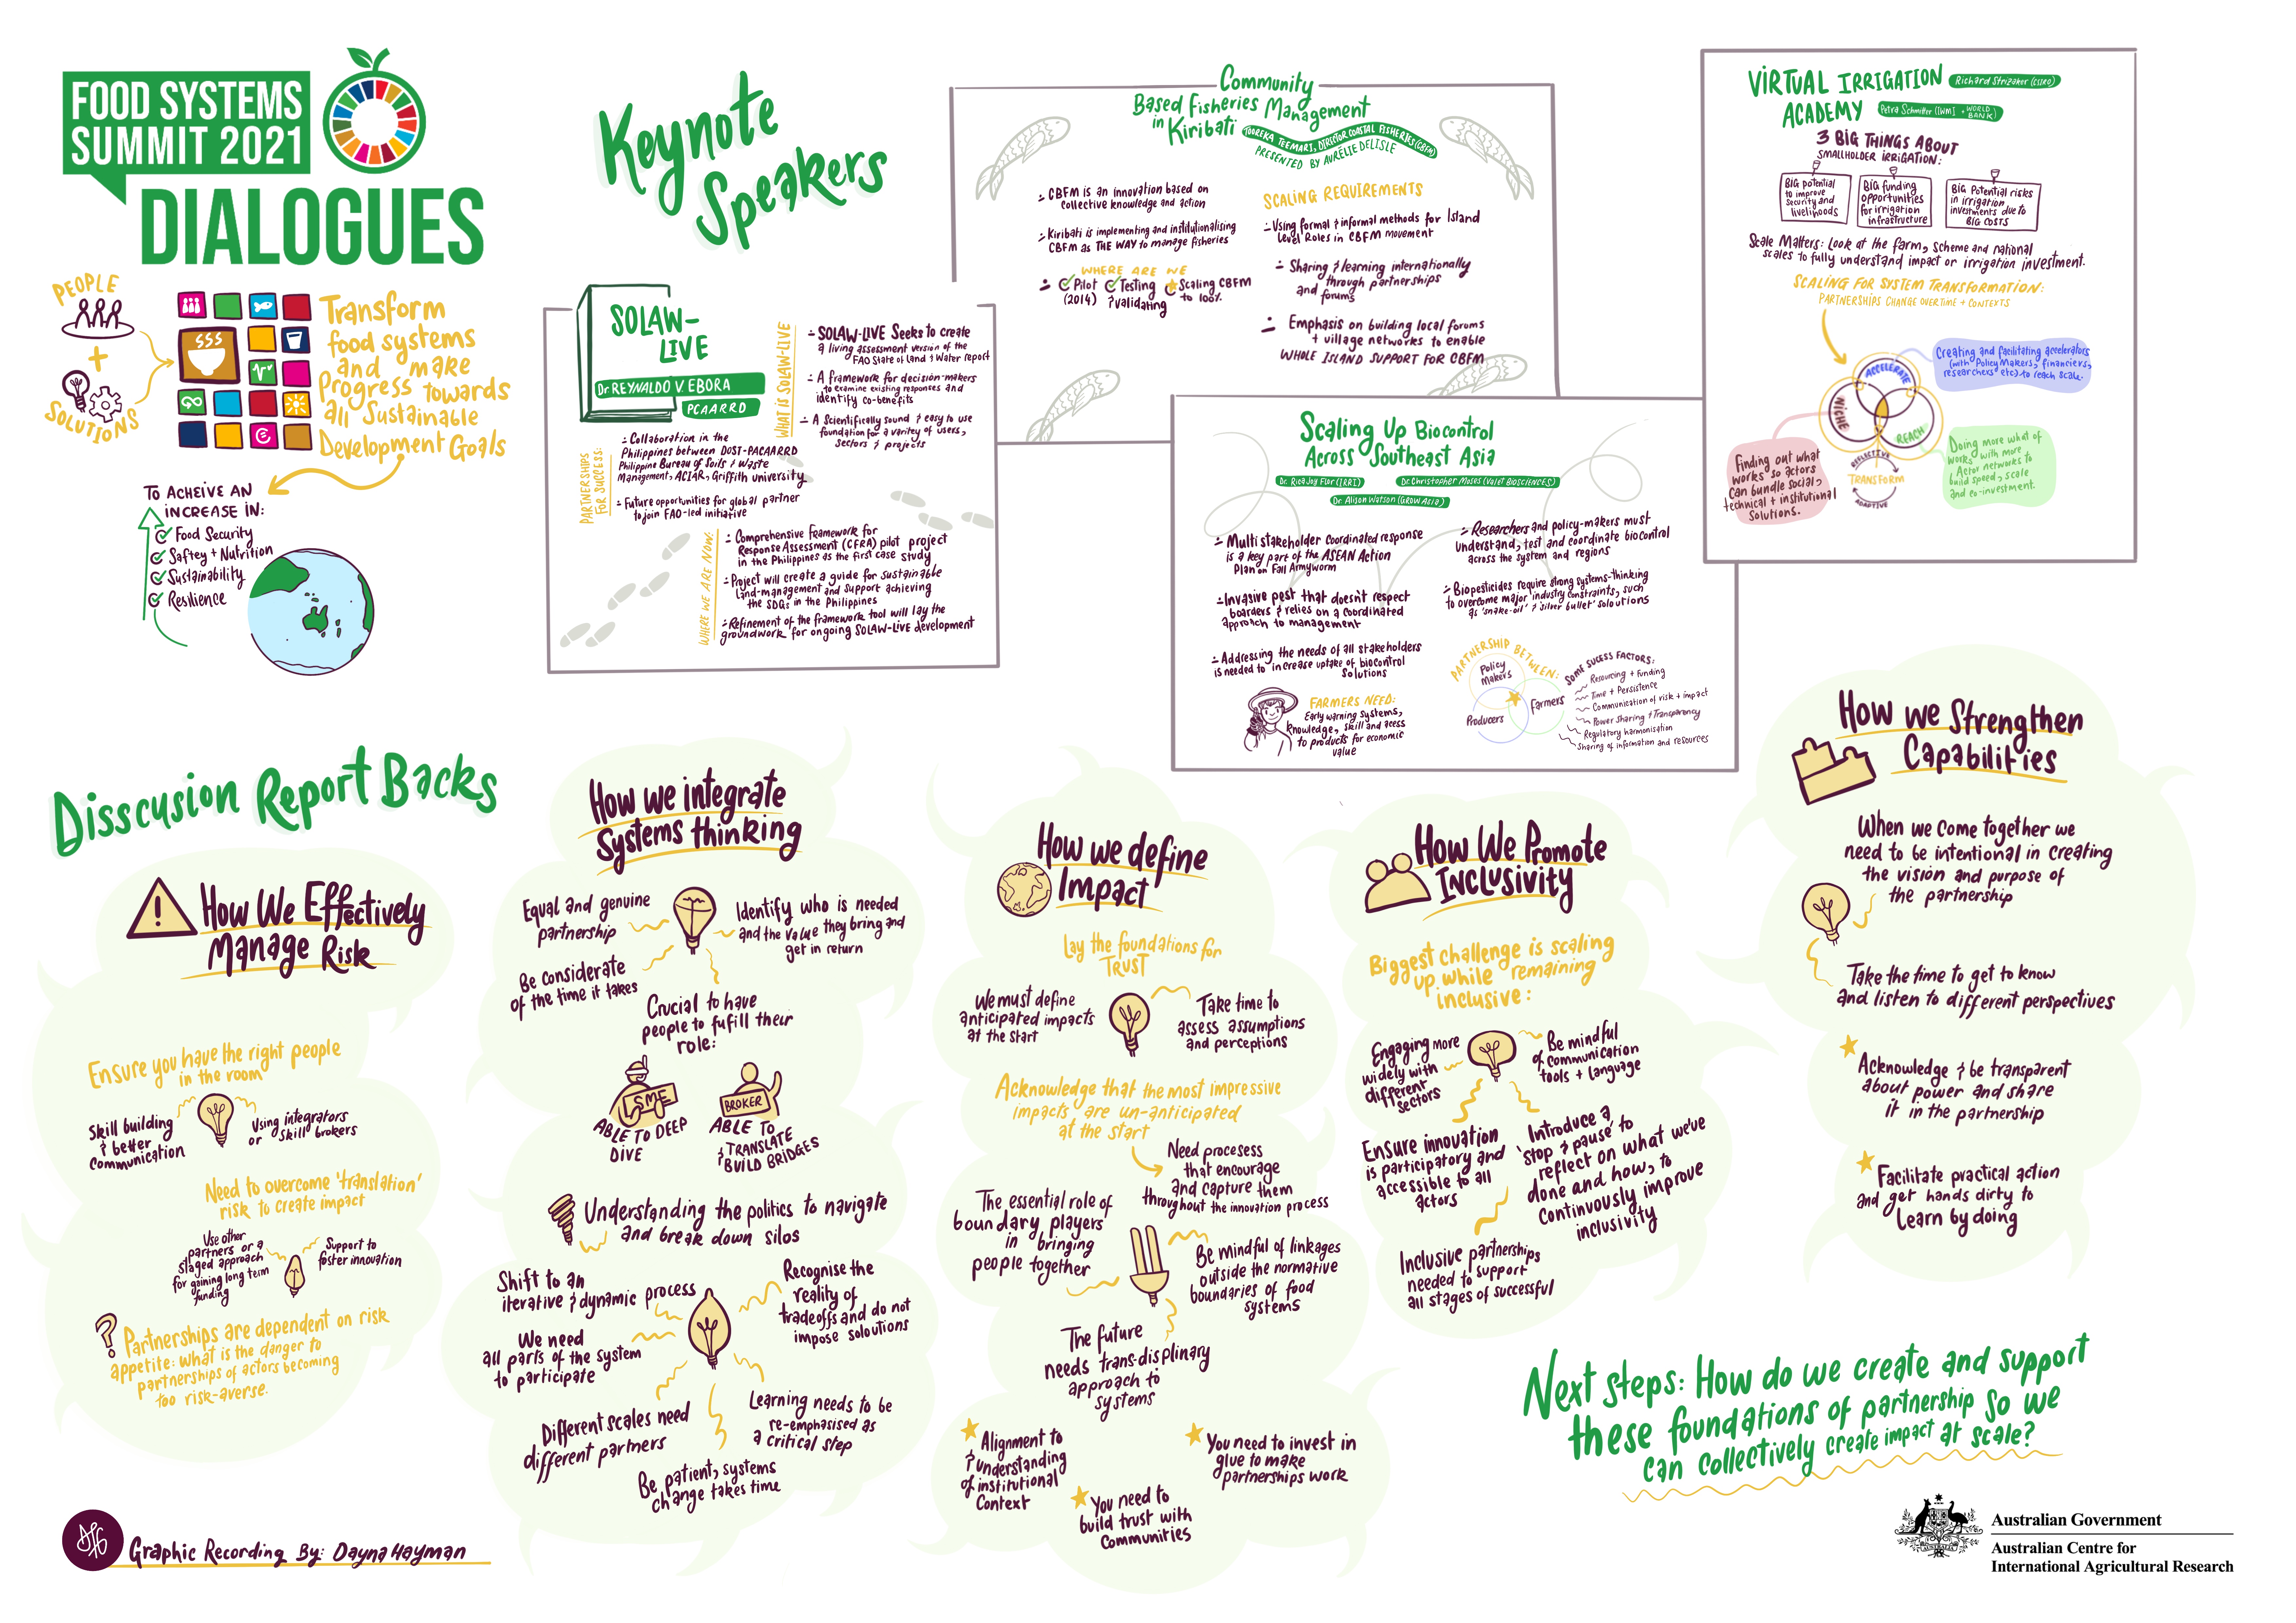 FOOD SYSTEMS
SUMMIT 2021
DIALOGUES
PEOPLE
+
SOLUTIONS
Transform
food systems
and make
Progress towards
all Sustainable
Development Goals
TO ACHEIVE AN
INCREASE IN:
Food Security
Saftey + Nutrition
Sustainability
Resilience
Keynote
Speakers
SOLAW-
LIVE
Dr REYNALDO V. EBORA
PCAARRD
WHAT IS SOLAW-LIVE
- SOLAW-LIVE Seeks to create
a living assessment version of the
FAO State of Land & Water report
- A framework for decision-makers
to examine existing responses and
identify co-benefits
- A Scientifically sound & easy to use
foundation for a varitey of users,
sectors & projects
PARTNERSHIPS
FOR SUCCESS:
- Collaboration in the
Philippines between DOST-PACAARRD
Philippine Bureau of Soils & Waste
Management, ACIAR, Griffith University
- Future opportunities for global partner
to join FAO-led initiative
WHERE WE ARE NOW:
- Comprehensive Framework for
Response Assessment (CFRA) pilot project
in the Philippines as the first case study
- Project will create a guide for sustainable
land-management and support achieving
the SDGs in the Philippines
- Refinement of the framework tool will lay the
groundwork for ongoing SOLAW-LIVE development
Community
Based Fisheries Management
in Kiribati
TOOREKA TEEMARI, DIRECTOR COASTAL FISHERIES (CBFM)
PRESENTED BY AURÉLIE DELISLE
- CBFM is an innovation based on
collective knowledge and action
- Kiribati is implementing and institutionalising
CBFM as THE WAY to manage fisheries
WHERE ARE WE
- Pilot Testing Scaling CBFM
(2014) & validating to 100%
SCALING REQUIREMENTS
- Using formal & informal methods for Island
Level Roles in CBFM movement
- Sharing & learning internationally
through partnerships
and forums
- Emphasis on building local forums
+ village networks to enable
WHOLE ISLAND SUPPORT FOR CBFM
Scaling Up Biocontrol
Across Southeast Asia
Dr. Rica Joy Flor (IRRI)
Dr. Christopher Moses (Valet BIOSCIENCES)
Dr. Alison Watson (GROW ASIA)
- Multi stakeholder coordinated response
is a key part of the ASEAN Action
Plan on Fall Armyworm
- Invasive pest that doesn't respect
boarders & relies on a coordinated
approach to management
- Addressing the needs of all stakeholders
is needed to increase uptake of biocontrol
solutions
FARMERS NEED:
Early warning systems,
knowledge, skill and acess
to products for economic
value
- Researchers and policy-makers must
understand, test and coordinate biocontrol
across the system and regions
- Biopesticides require strong systems-thinking
to overcome major industry constraints, such
as 'snake-oil' & 'silver bullet' solutions
PARTNERSHIP BETWEEN:
Policy
Makers
Producers
Farmers
SOME SUCESS FACTORS:
Resourcing + Funding
Time + Persistence
Communication of risk + impact
Power Sharing + Transparency
Regulatory harmonisation
Sharing of information and resources
VIRTUAL IRRIGATION
ACADEMY
Richard Stirzaker (CSIRO)
Petra Schmitter (IWMI + WORLD BANK)
3 BIG THINGS ABOUT
SMALLHOLDER IRRIGATION:
BIG potential
to improve
Security and
livelihoods
BIG funding
opportunities
for irrigation
infrastructure
BIG Potential risks
in irrigation
investments due to
BIG COSTS
Scale Matters: Look at the farm, scheme and national
scales to fully understand impact or irrigation investment.
SCALING FOR SYSTEM TRANSFORMATION:
PARTNERSHIPS CHANGE OVER TIME + CONTEXTS
ACCELERATE
NICHE
REACH
REFLECTIVE
TRANSFORM
ADAPTIVE
Creating and facilitating accelerators
(with Policy Makers, financiers,
researchers etc) to reach scale.
Finding out what
works so actors
can bundle social,
technical + institutional
Solutions.
Doing more what of
works with more
Actor networks to
build speed, scale
and co-investment.
Disscusion Report Backs
How We Effectively
Manage Risk
Ensure you have the right people
in the room
Skill building
& better
communication
Using integrators
or skill brokers
Need to overcome 'translation'
risk to create impact
Use other
partners or a
staged approach
for gaining long term
funding
Support to
foster innovation
? Partnerships are dependent on risk
appetite: what is the danger to
partnerships of actors becoming
too risk-averse.
How we integrate
Systems thinking
Equal and genuine
partnership
Identify who is needed
and the value they bring and
get in return
Be considerate
of the time it takes
Crucial to have
people to fufill their
role:
SME
ABLE TO DEEP
DIVE
BROKER
ABLE TO
TRANSLATE
& BUILD BRIDGES
Understanding the politics to navigate
and break down silos
Shift to an
iterative & dynamic process
Recognise the
reality of
tradeoffs and do not
impose soloutions
We need
all parts of the system
to participate
Different scales need
different partners
Learning needs to be
re-emphasised as
a critical step
Be patient, systems
change takes time
How we define
Impact
Lay the foundations for
TRUST
We must define
anticipated impacts
at the start
Take time to
assess assumptions
and perceptions
Acknowledge that the most impressive
impacts are un-anticipated
at the start
Need procesess
that encourage
and capture them
throughout the innovation process
The essential role of
boundary players
in bringing
people together
Be mindful of linkages
outside the normative
boundaries of food
systems
The future
needs trans-displinary
approach to
systems
Alignment to
& understanding
of institutional
Context
You need to invest in
glue to make
partnerships work
You need to
build trust with
communities
How We Promote
Inclusivity
Biggest challenge is scaling
up while remaining
inclusive:
Engaging more
widely with
different
sectors
Be mindful
of communication
tools + language
Ensure innovation
is participatory and
accessible to all
actors
Introduce a
'stop & pause' to
reflect on what we've
done and how, to
continuously improve
inclusivity
Inclusive partnerships
needed to support
all stages of successful
How we Strengthen
Capabilities
When we come together we
need to be intentional in creating
the vision and purpose of
the partnership
Take the time to get to know
and listen to different perspectives
Acknowledge & be transparent
about power and share
it in the partnership
Facilitate practical action
and get hands dirty to
learn by doing
Next steps: How do we create and support
these foundations of partnership so we
can collectively create impact at scale?
Graphic Recording By: Dayna Hayman
Australian Government
Australian Centre for
International Agricultural Research